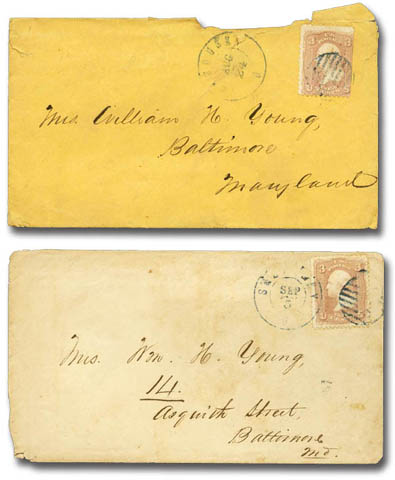 AUG
24
Mrs William H. Young,
Baltimore
Maryland
SEP
Mrs. Wm. H. Young,
14.
Asquith Street,
Baltimore
Md.